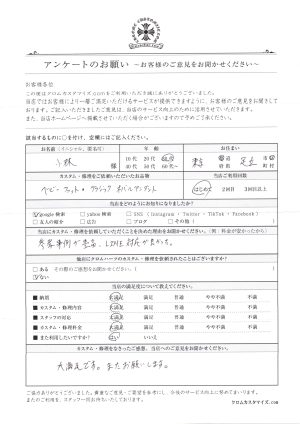 アンケートのお願い ～お客様のご意見をお聞かせください～
お客様各位
この度はクロムカスタマイズ.comをご利用いただき誠にありがとうございました。
当店ではお客様により一層ご満足いただけるサービスが提供できますように、お客様のご意見をお聞きして
おります。ご記入いただきましたご意見は、当店のサービス向上のために活用させていただきます。
また、当店ホームページへ掲載させていただく場合がございますので予めご了承ください。
該当するものに○を付け、空欄にはご記入ください。
お名前（イニシャル、匿名可） 年齢 お住まい
小林 様
10代 20代 30代
40代 50代 60代～
東京 都 道 府 県 足立 市 区 町 村
カスタム・修理をご依頼いただいたお品物 当店ご利用回数
ベビーファット・クラシックオーバルペンダント はじめて 2回目 3回目以上
当店をどのようにお知りになりましたか？
google 検索 yahoo 検索 SNS（Instagram・Twitter・TikTok・Facebook）
友人の紹介 広告 ブログ その他（ ）
当店にカスタム・修理を依頼していただくことを決めた理由をお聞かせください。（例：料金が安かったから）
参考事例が豊富。LINE対応が良かった。
他店にクロムハーツのカスタム・修理を依頼されたことはございますか？
ある その際のご感想をお聞かせください。（ ）
ない
当店の満足度についてお聞かせください。
■ 納期 大満足 満足 普通 やや不満 不満
■ カスタム・修理内容 大満足 満足 普通 やや不満 不満
■ スタッフの対応 大満足 満足 普通 やや不満 不満
■ カスタム・修理料金 大満足 満足 普通 やや不満 不満
■ また利用したいですか？ はい いいえ
カスタム・修理をなさったご感想、当店へのご意見をお聞かせください。
大満足です。またお願いします。
ご協力ありがとうございました。貴重なご意見・ご要望を参考にし、今後のサービス向上に努めてまいります。
またのご利用を、スタッフ一同お待ちいたしております。
クロムカスタマイズ.com